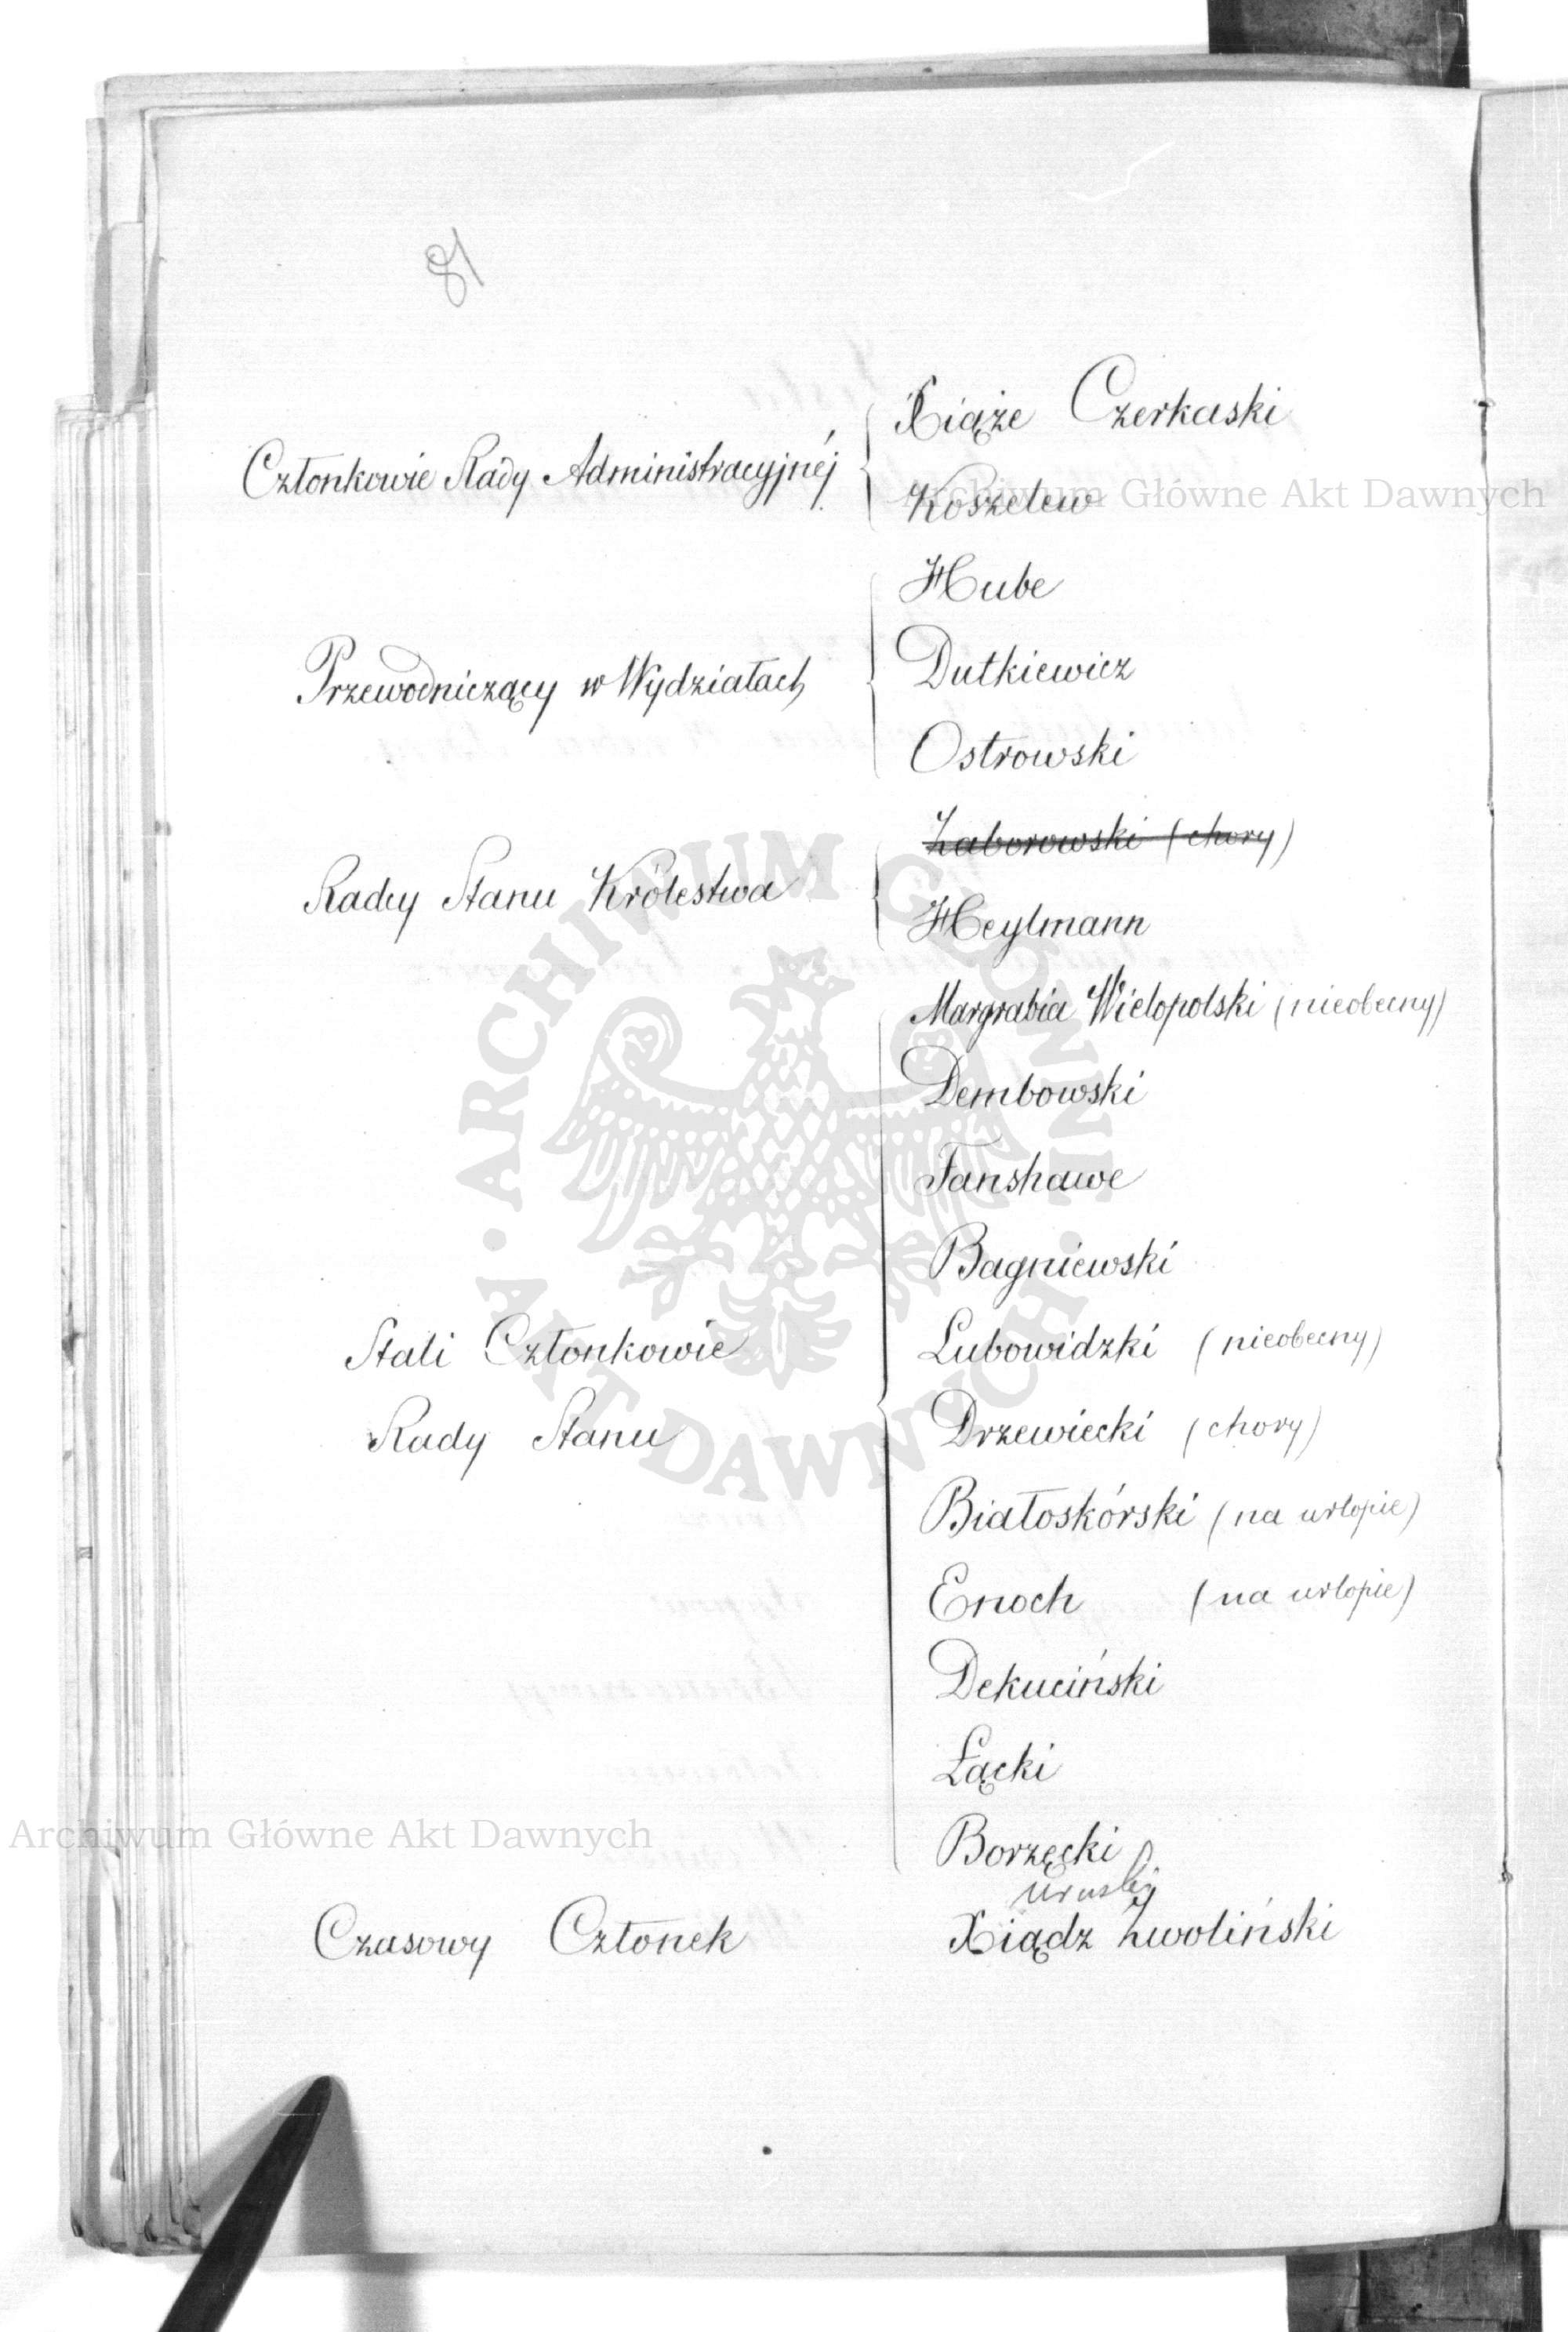 81
Członkowie Rady Administracyjnéj
Xiąże Czerkaski
Koszelew
Archiwum Główne Akt Dawnych
Przewodniczący w Wydziałach
Hube
Dutkiewicz
Ostrowski
Radcy Stanu Królestwa
Zaborowski (chory)
Heylmann
ARCHIWUM GŁÓWNE · AKT DAWNYCH ·
Stali Członkowie
Rady Stanu
Margrabia Wielopolski (nieobecny)
Dembowski
Fanshawe
Bagniewski
Lubowidzki (nieobecny)
Drzewiecki (chory)
Białoskórski (na urlopie)
Enoch (na urlopie)
Dekuciński
Łącki
Borzęcki
Archiwum Główne Akt Dawnych
Uruski
Czasowy Członek
Xiądz Zwoliński